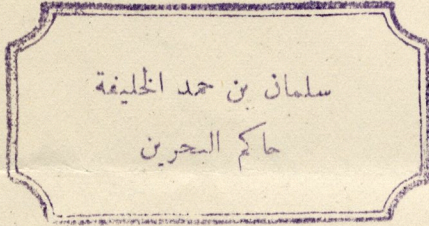 سلمان بن حمد الخليفة
حاكم البحرين